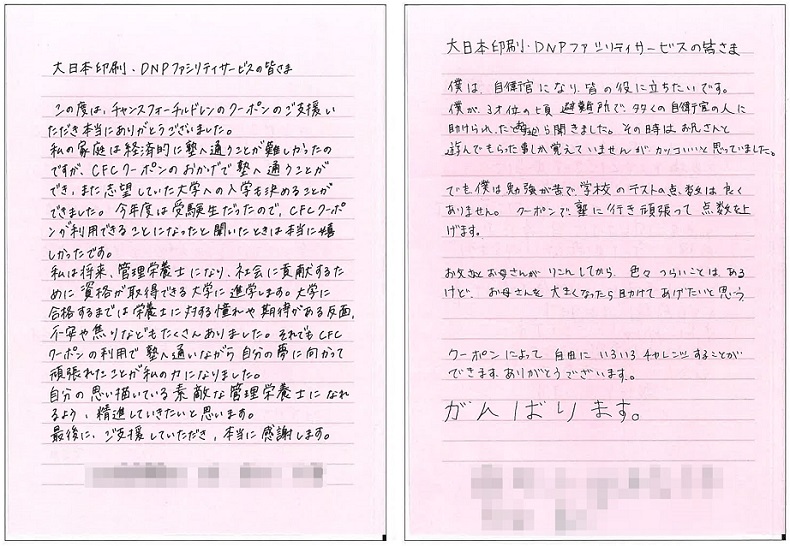 大日本印刷・DNPファシリティサービスの皆さま
この度は、チャンスフォーチルドレンのクーポンのご支援い
ただき本当にありがとうございました。
私の家庭は経済的に塾へ通うことが難しかったの
ですが、CFCクーポンのおかげで塾へ通うことがで
でき、また志望していた大学への入学も決めることが
できました。今年度は受験生だったので、CFCクーポ
ンが利用できることになったと聞いたときは本当に嬉
しかったです。
私は将来、管理栄養士になり、社会に貢献するた
めに資格が取得できる大学に進学します。大学に
合格するまでは栄養士に対する憧れや期待がある反面、
不安や焦りなどもたくさんありました。それでもCFC
クーポンの利用で塾へ通いながら自分の夢に向かって
頑張れたことが私の力になりました。
自分の思い描いている素敵な管理栄養士になれ
るよう、精進していきたいと思います。
最後に、ご支援していただき、本当に感謝します。
大日本印刷・DNPファシリティサービスの皆さま
僕は、自衛官になり、皆の役に立ちたいです。
僕が、3才位の頃 避難所で、多くの自衛官の人に
助けられたと から聞きました。その時はお兄さんと
遊んでもらった事しか覚えていませんが、カッコいいと思っていました。
でも僕は勉強が苦手で、学校のテストの点数は良く
ありません。クーポンで、塾に行き頑張って点数を上
げます。
お父さんとお母さんがりこんしてから、色々つらいことはある
けど、お母さんを大きくなったら助けてあげたいと思う
クーポンによって自由にいろいろチャレンジすることが
できます。ありがとうございます。
がんばります。